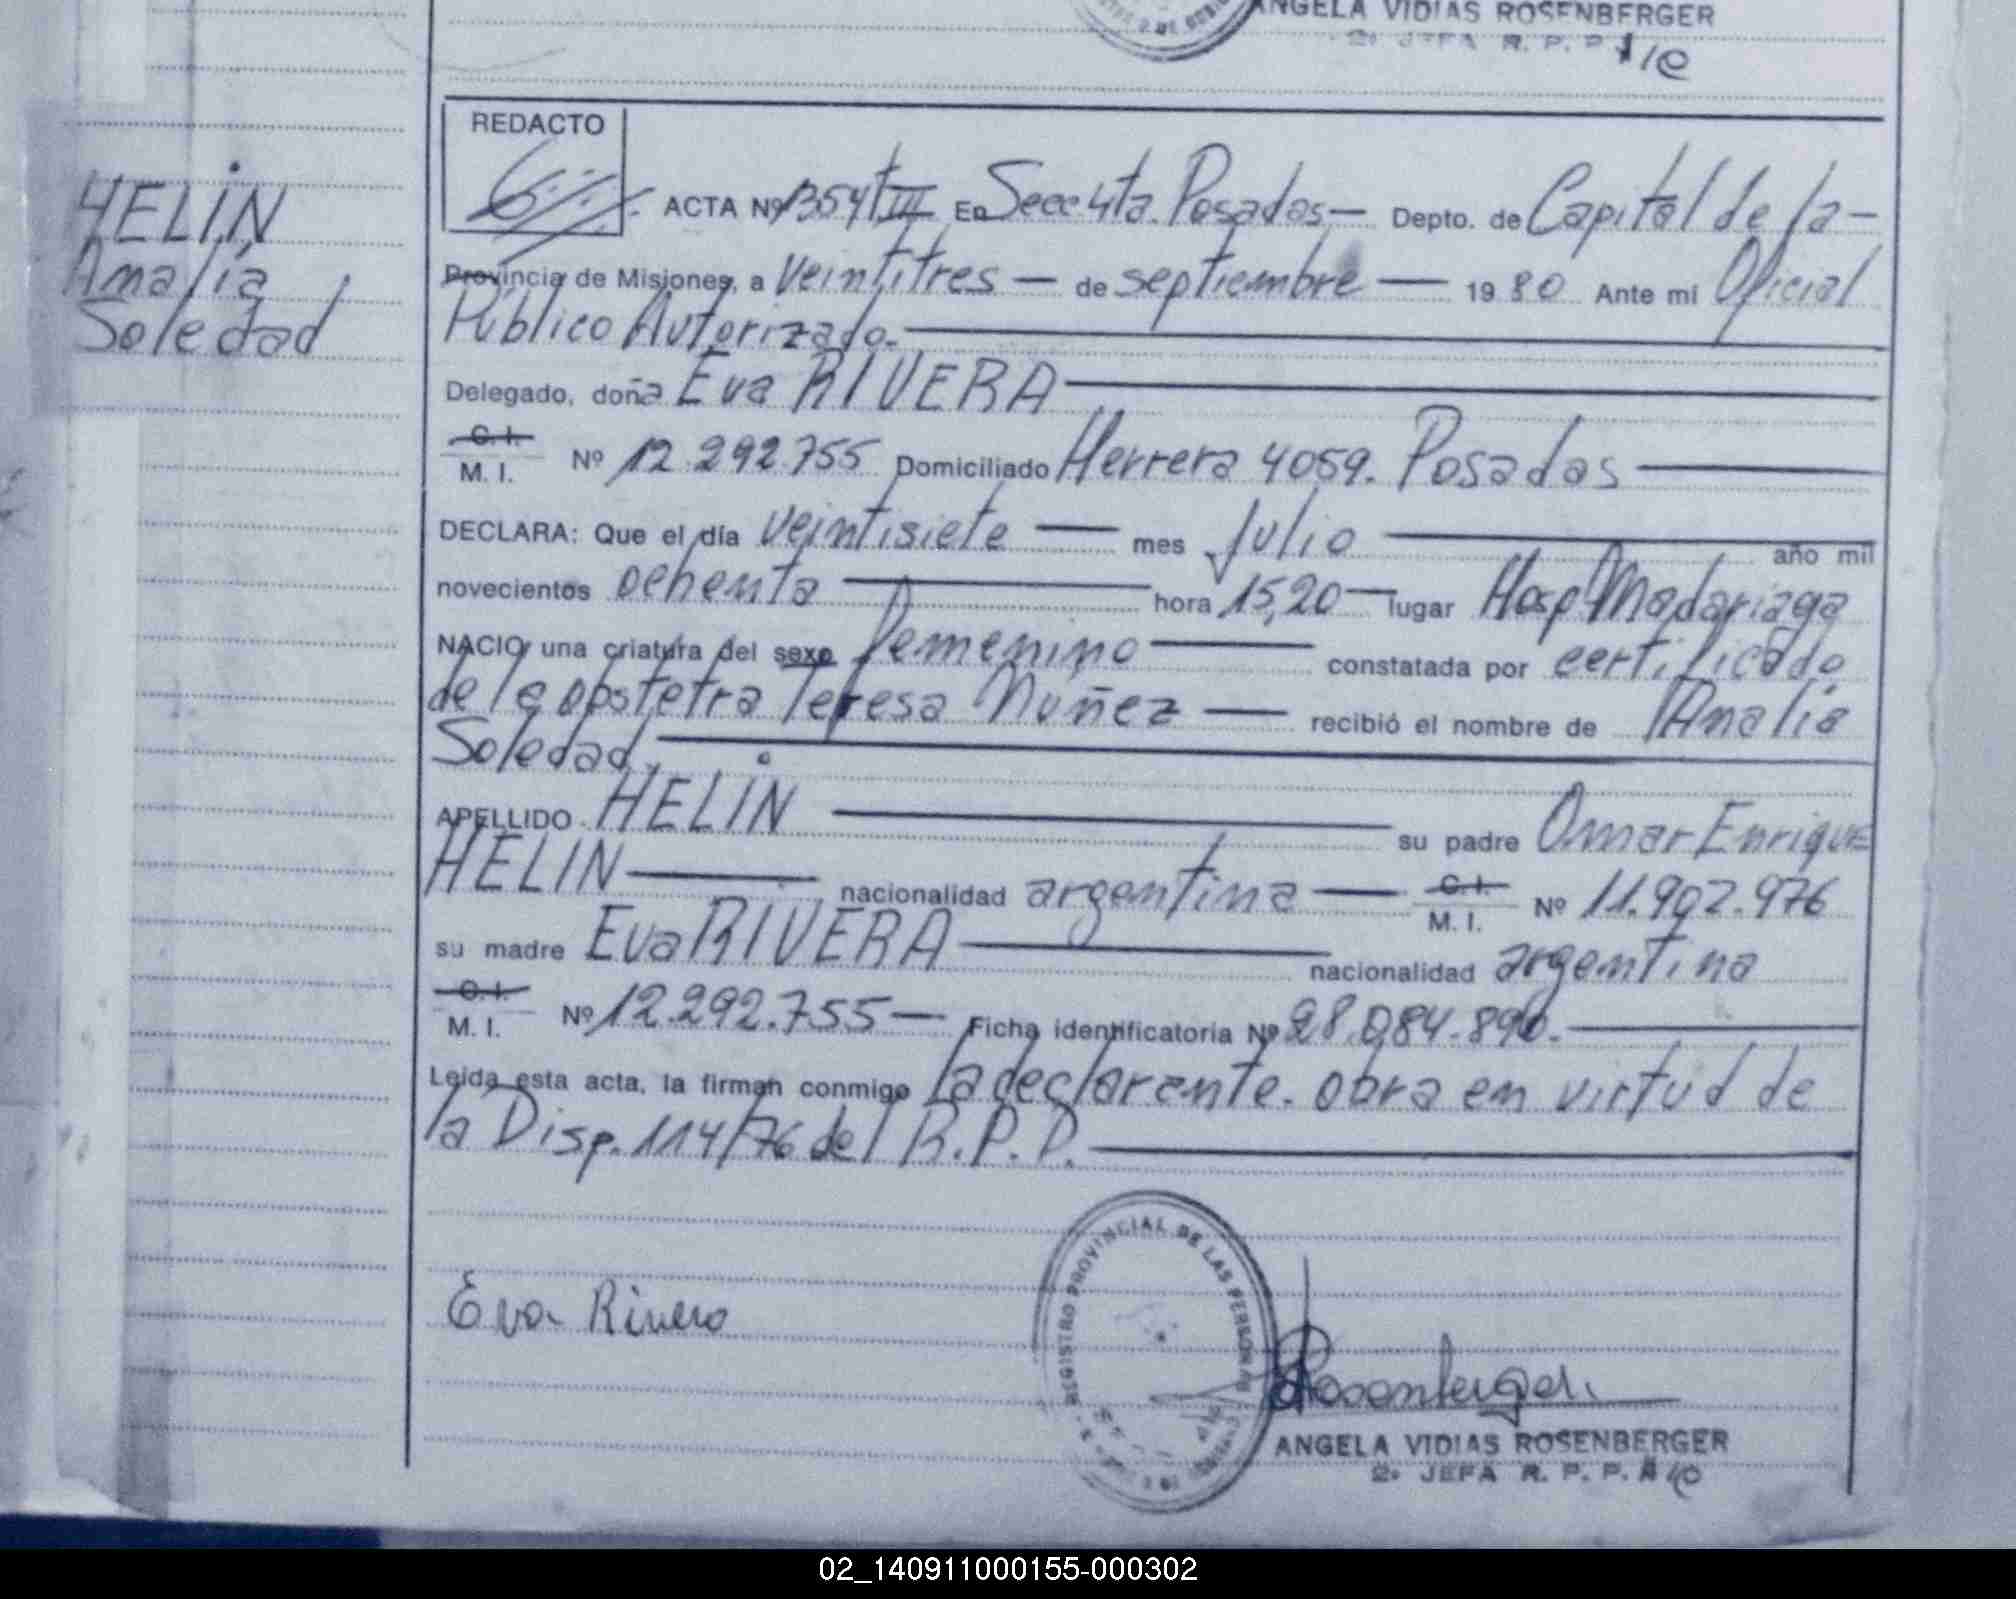 ANGELA VIDIAS ROSENBERGER
2º JEFA R. P. P.
REDACTO
HELIN
Analía
Soledad
ACTA Nº 1354 t III En Secc 4ta. Posadas — Depto. de Capital de la —
Provincia de Misiones, a veintitres — de septiembre — 19 80 Ante mi Oficial
Público Autorizado.
Delegado, doña Eva RIVERA
C. I.
M. I. Nº 12.292.755 Domiciliado Herrera 4059. Posadas
DECLARA: Que el día veintisiete — mes Julio — año mil
novecientos ochenta — hora 15,20 — lugar Hosp Madariaga
NACIO una criatura del sexo femenino — constatada por certificado
de la obstetra Teresa Nuñez — recibió el nombre de Analía
Soledad.
APELLIDO HELIN — su padre Omar Enrique
HELIN — nacionalidad argentina — C. I.
M. I. Nº 11.902.976
su madre Eva RIVERA — nacionalidad argentina
C. I.
M. I. Nº 12.292.755 — Ficha identificatoria Nº 28.084.890.
Leida esta acta, la firman conmigo la declarante. obra en virtud de
la Disp. 114/76 del R.P.P.
Eva Rivero
REGISTRO PROVINCIAL DE LAS PERSONAS
Rosenberger
ANGELA VIDIAS ROSENBERGER
2º JEFA R. P. P.
02_140911000155-000302